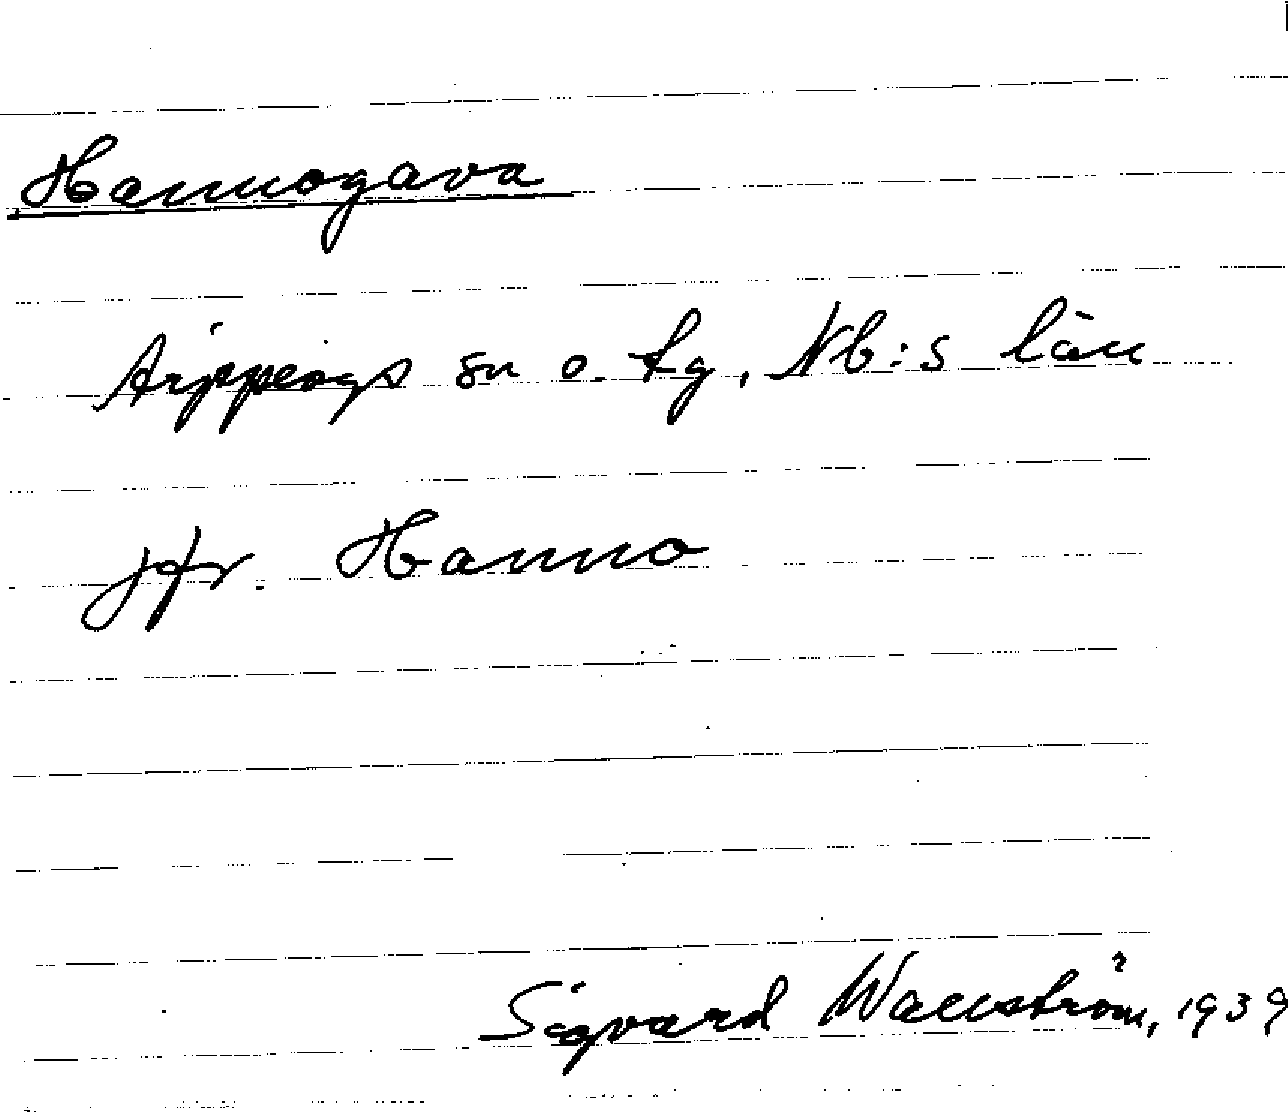 Hannogava
Arjepogs sn o. tg, Nb:s län
jfr. Hanno
Sigvard Wallström, 1939